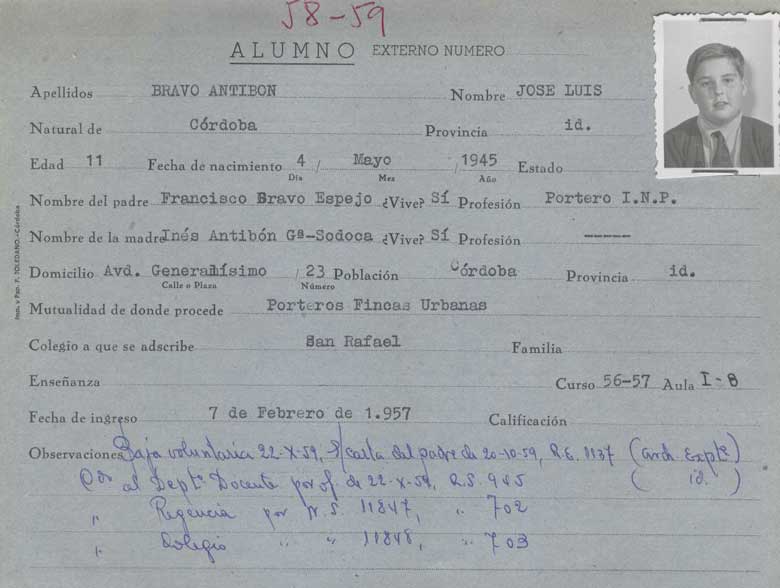 58-59
ALUMNO EXTERNO NUMERO
Apellidos BRAVO ANTIBON Nombre JOSE LUIS
Natural de Córdoba Provincia id.
Edad 11 Fecha de nacimiento 4 / Mayo / 1945 Estado
Día Mes Año
Nombre del padre Francisco Bravo Espejo ¿Vive? Sí Profesión Portero I.N.P.
Nombre de la madre Inés Antibón Gª-Sodoca ¿Vive? Sí Profesión ----
Domicilio Avd. Generalísimo / 23 Población Córdoba Provincia id.
Calle o Plaza Número
Mutualidad de donde procede Porteros Fincas Urbanas
Colegio a que se adscribe San Rafael Familia
Enseñanza Curso 56-57 Aula I-8
Fecha de ingreso 7 de Febrero de 1.957 Calificación
Observaciones Baja voluntaria 22-X-59, s/carta del padre de 20-10-59, R.E. 1137 (arch. Expte)
Com al Deptº Docente por of. de 22-X-59, R.S. 985 ( id. )
" Regencia por N.S. 11847, " 702
" Colegio " " 11848, " 703
Imp. y Pap. F. TOLEDANO.-Córdoba